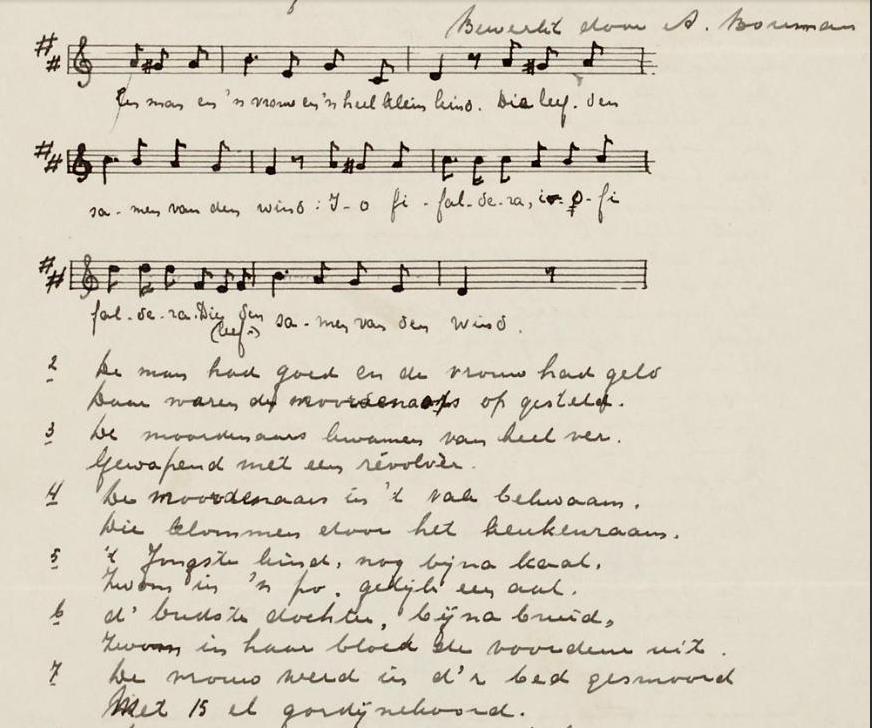 Bewerkt door A. Bouman
Een man en 'n vrouw en 'n heel klein kind. Die leef. den
sa - men van den wind : I - o fi - fal - de - ra, i - o - fi
fal - de - ra. Die (leef-) den sa - men van den wind.
2 De man had goed en de vrouw had geld
Daar waren de moordenaars op gesteld.
3 De moordenaars kwamen van heel ver.
Gewapend met een révolvèr.
4 De moordenaars in 't vak bekwaam,
Die klommen door het keukenraam.
5 't Jongste kind, nog bijna kaal,
Zwom in 'n po, gelijk een aal.
6 d' Oudste dochter, bijna bruid,
Zwom in haar bloed de voordeur uit.
7 De vrouw werd in d'r bed gesmoord
Met 15 el gordijnekoord.